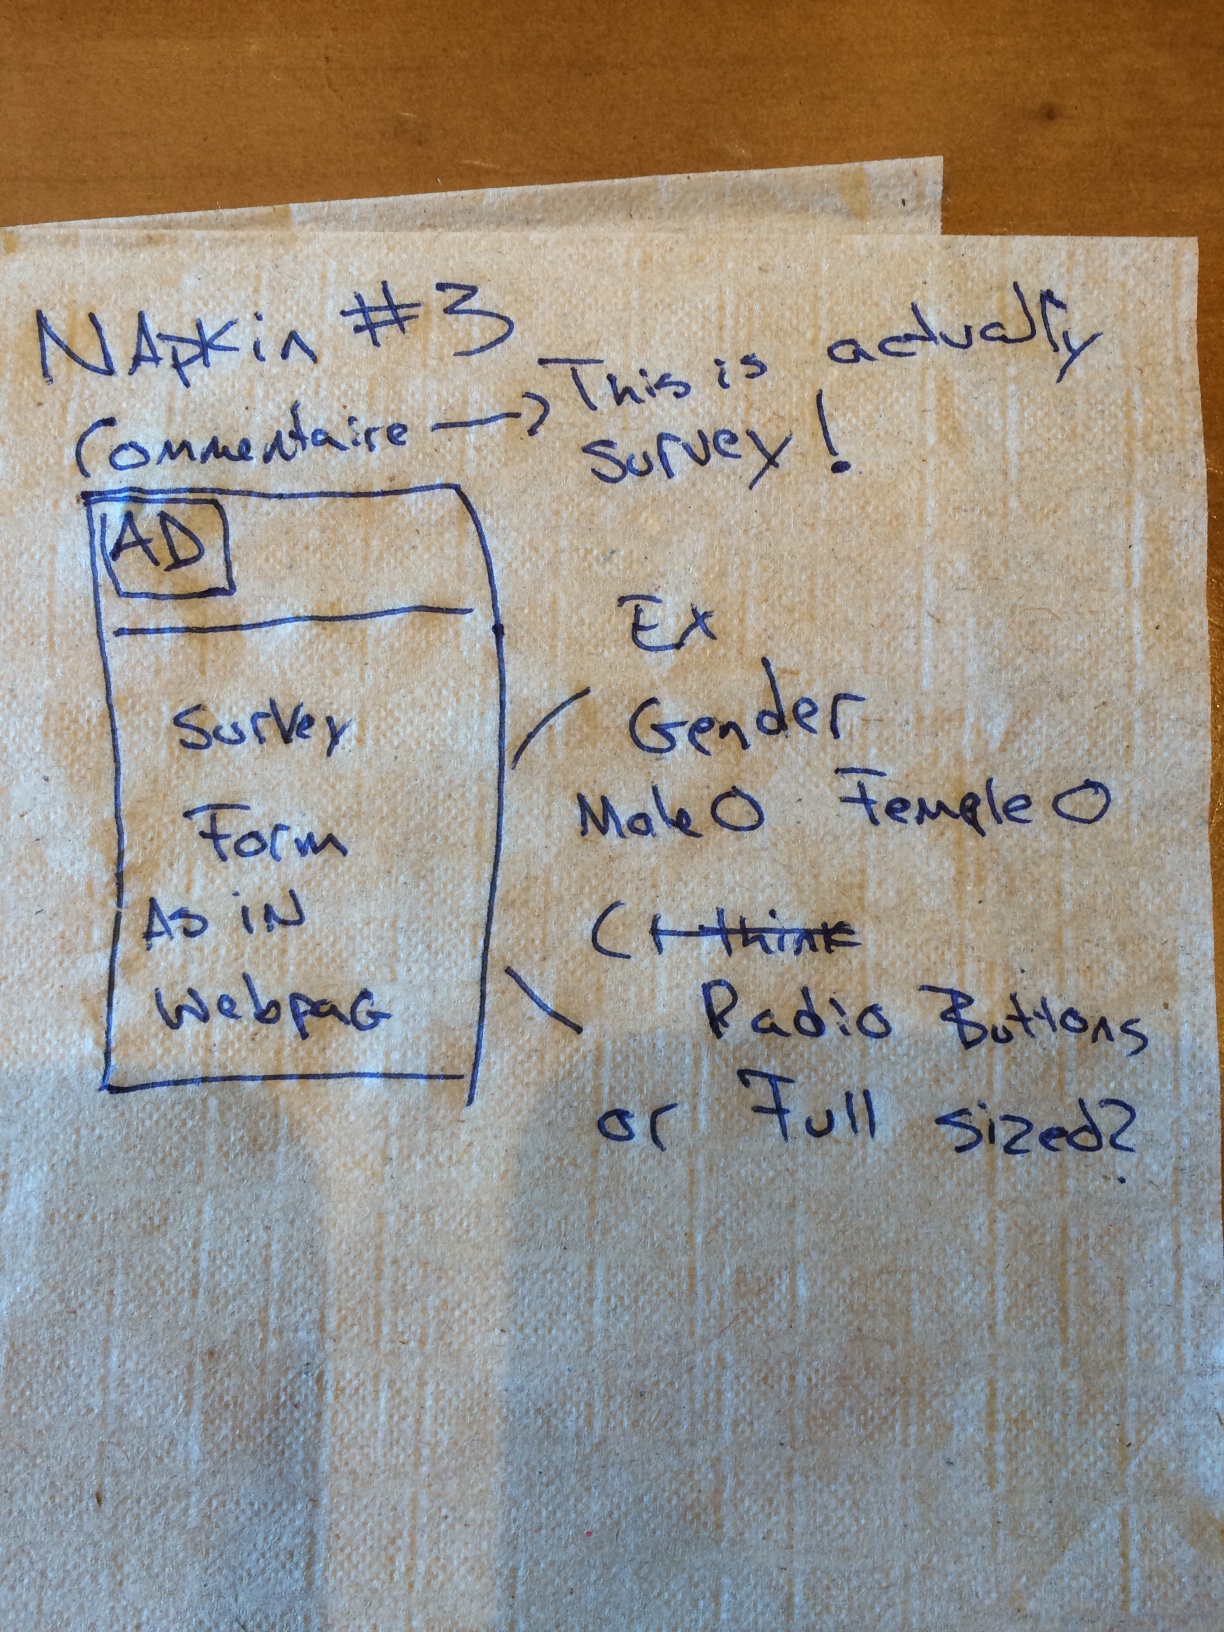 NApkin #3
Commentaire → This is actually
survey!
AD
Survey
Form
As iN
WebpaG
Ex
Gender
Male O Female O
(I think
Radio Buttons
or Full sized?